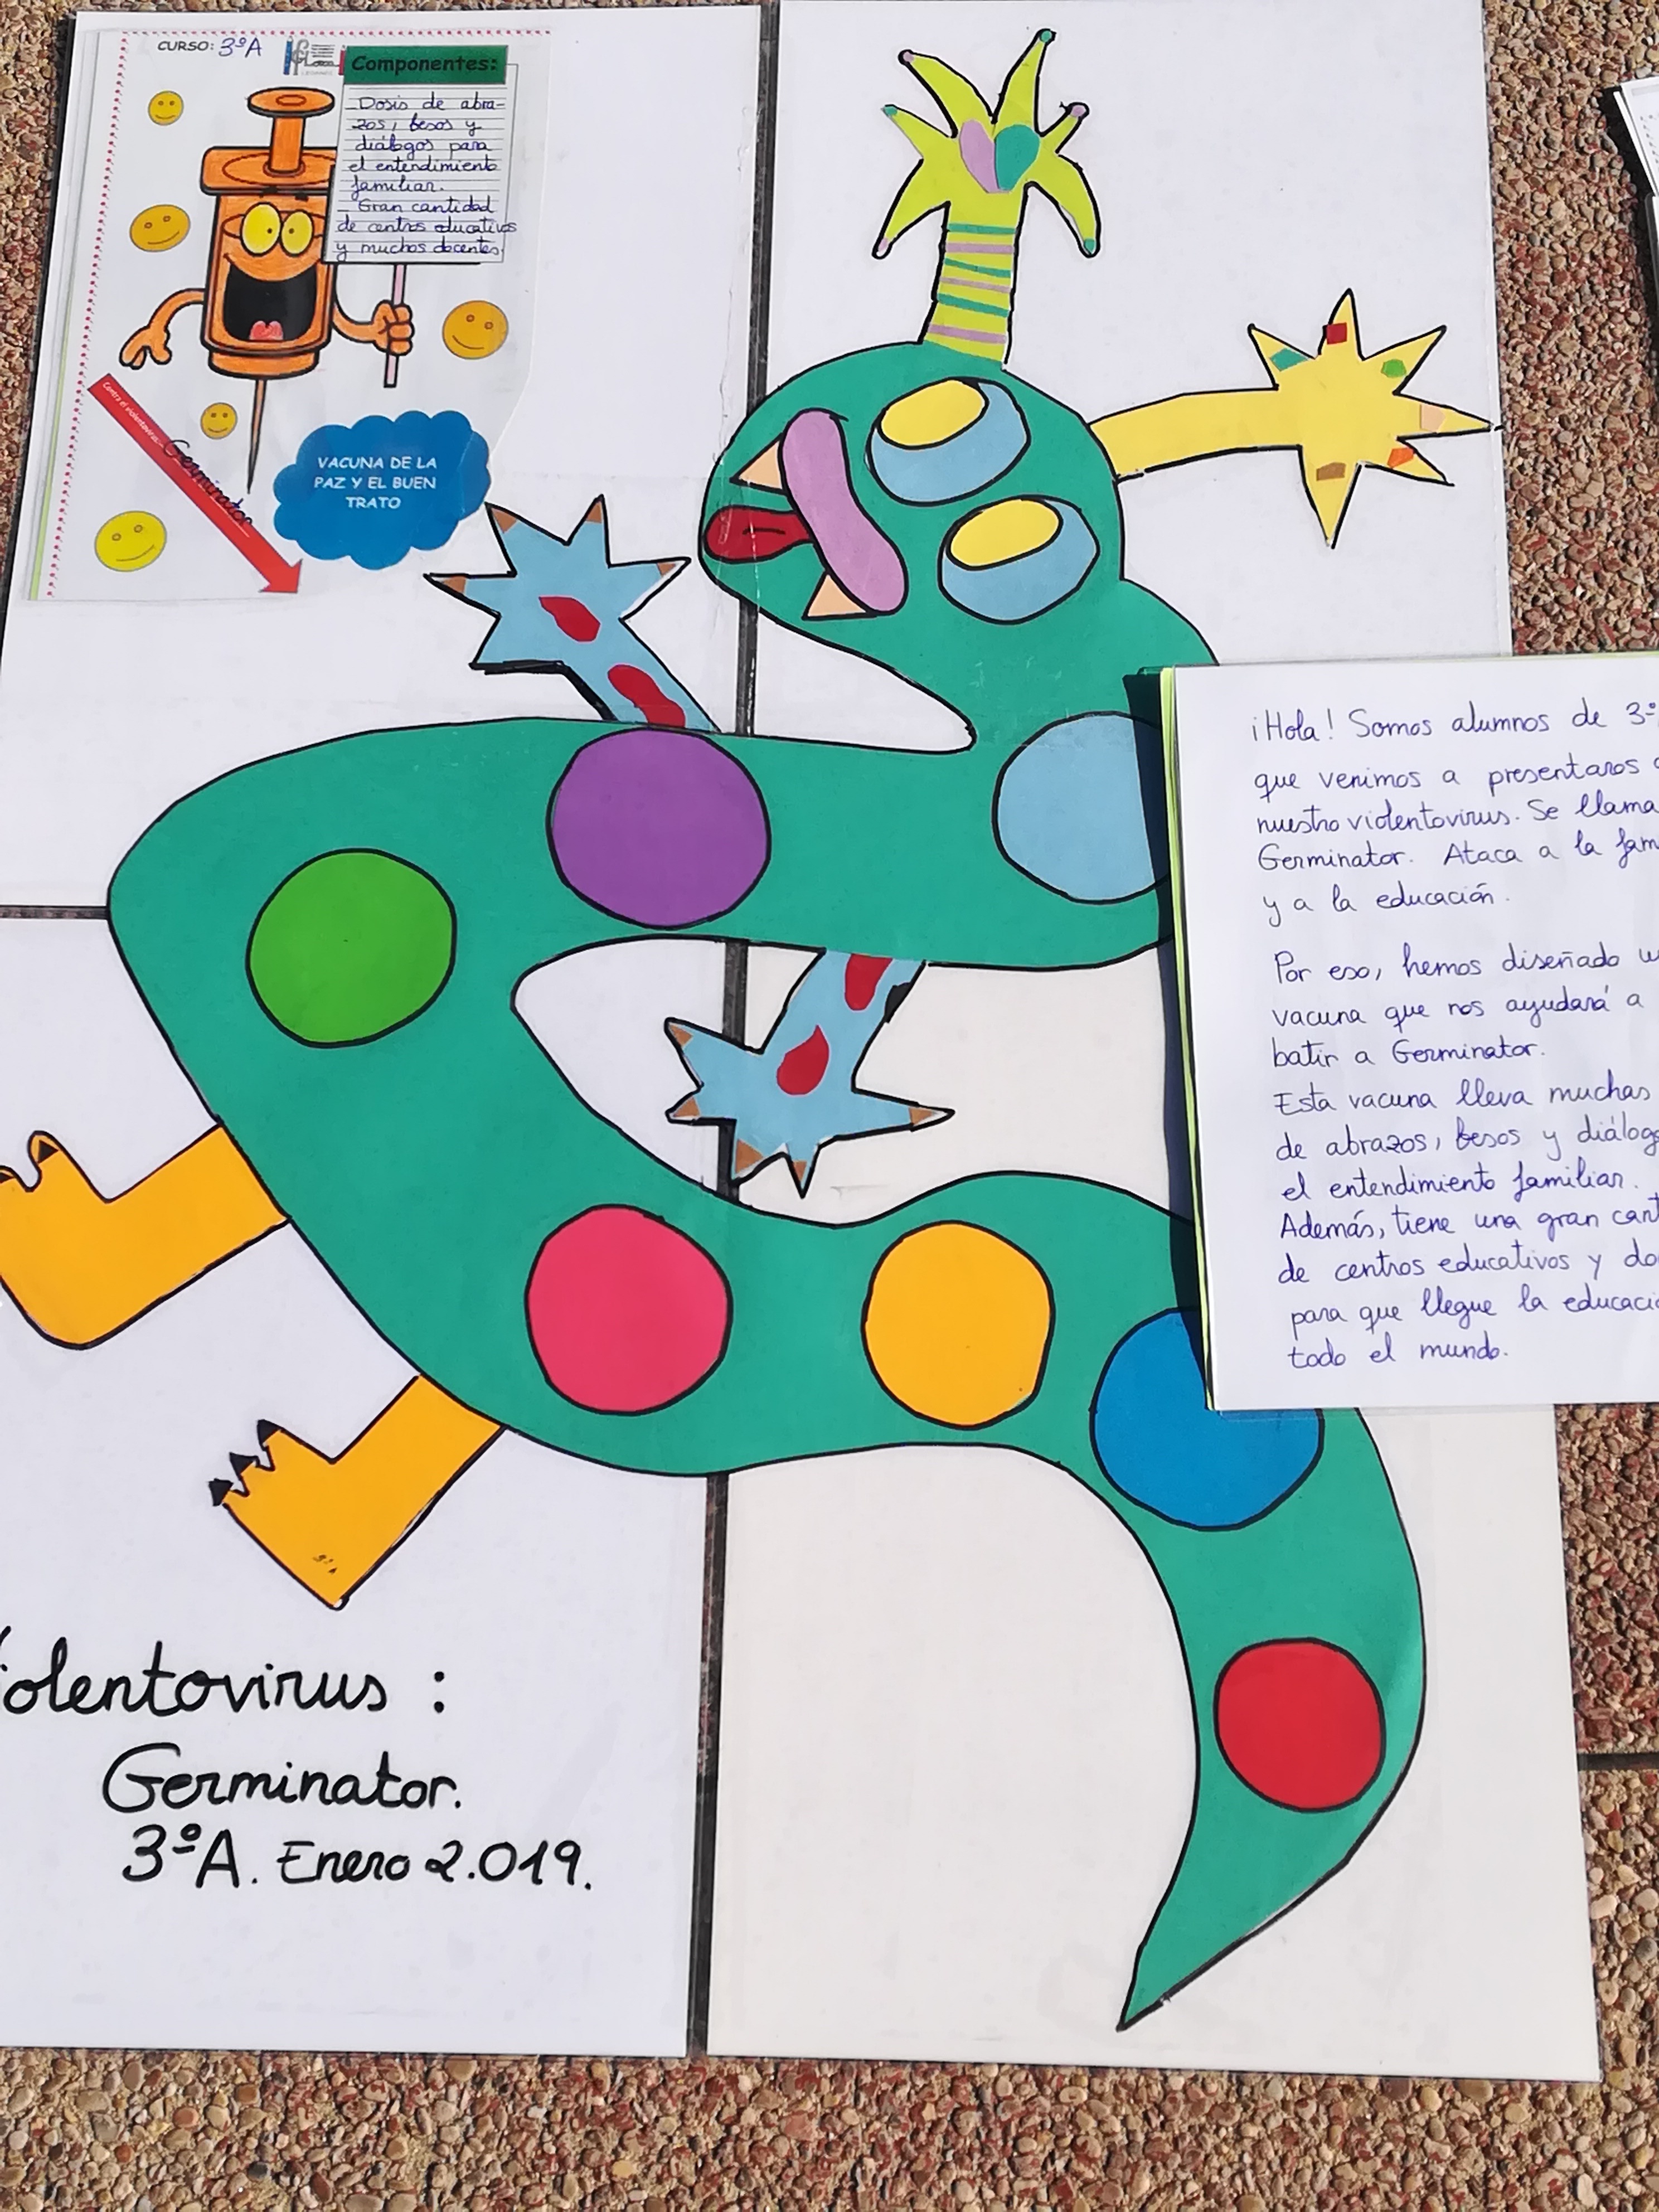 CURSO: 3ºA
Componentes:
Dosis de abra-
zos, besos y
diálogos para
el entendimiento
familiar.
Gran cantidad
de centros educativos
y muchos docentes.
Contra el violentovirus...
Germinator
VACUNA DE LA
PAZ Y EL BUEN
TRATO
¡Hola! Somos alumnos de 3º
que venimos a presentaros
nuestro violentovirus. Se llama
Germinator. Ataca a la fam
y a la educación.
Por eso, hemos diseñado
vacuna que nos ayudará a
batir a Germinator.
Esta vacuna lleva muchas
de abrazos, besos y diálog
el entendimiento familiar.
Además, tiene una gran cant
de centros educativos y do
para que llegue la educaci
todo el mundo.
iolentovirus :
Germinator.
3ºA. Enero 2.019.